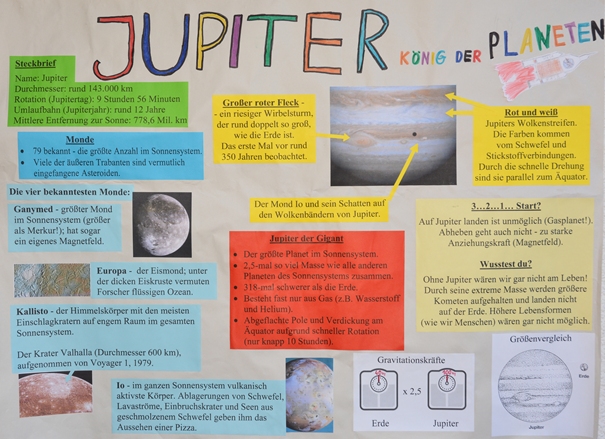 JUPITER KÖNIG DER PLANETEN
Steckbrief
Name: Jupiter
Durchmesser: rund 143.000 km
Rotation (Jupitertag): 9 Stunden 56 Minuten
Umlaufbahn (Jupiterjahr): rund 12 Jahre
Mittlere Entfernung zur Sonne: 778,6 Mil. km
Monde
79 bekannt - die größte Anzahl im Sonnensystem.
Viele der äußeren Trabanten sind vermutlich
eingefangene Asteroiden.
Die vier bekanntesten Monde:
Ganymed - größter Mond
im Sonnensystem (größer
als Merkur!); hat sogar
ein eigenes Magnetfeld.
Europa - der Eismond; unter
der dicken Eiskruste vermuten
Forscher flüssigen Ozean.
Kallisto - der Himmelskörper mit den meisten
Einschlagkratern auf engem Raum im gesamten
Sonnensystem.
Der Krater Valhalla (Durchmesser 600 km),
aufgenommen von Voyager 1, 1979.
Io - im ganzen Sonnensystem vulkanisch
aktivste Körper. Ablagerungen von Schwefel,
Lavaströme, Einbruchskrater und Seen aus
geschmolzenem Schwefel geben ihm das
Aussehen einer Pizza.
Großer roter Fleck -
- ein riesiger Wirbelsturm,
der rund doppelt so groß,
wie die Erde ist.
Das erste Mal vor rund
350 Jahren beobachtet.
Der Mond Io und sein Schatten auf
den Wolkenbändern von Jupiter.
Jupiter der Gigant
Der größte Planet im Sonnensystem.
2,5-mal so viel Masse wie alle anderen
Planeten des Sonnensystems zusammen.
318-mal schwerer als die Erde.
Besteht fast nur aus Gas (z.B. Wasserstoff
und Helium).
Abgeflachte Pole und Verdickung am
Äquator aufgrund schneller Rotation
(nur knapp 10 Stunden).
Rot und weiß
Jupiters Wolkenstreifen.
Die Farben kommen
vom Schwefel und
Stickstoffverbindungen.
Durch die schnelle Drehung
sind sie parallel zum Äquator.
3...2...1... Start?
Auf Jupiter landen ist unmöglich (Gasplanet!).
Abheben geht auch nicht - zu starke
Anziehungskraft (Magnetfeld).
Wusstest du?
Ohne Jupiter wären wir gar nicht am Leben!
Durch seine extreme Masse werden größere
Kometen aufgehalten und landen nicht
auf der Erde. Höhere Lebensformen
(wie wir Menschen) wären gar nicht möglich.
Gravitationskräfte
x 2,5
Erde Jupiter
Größenvergleich
Erde
Jupiter